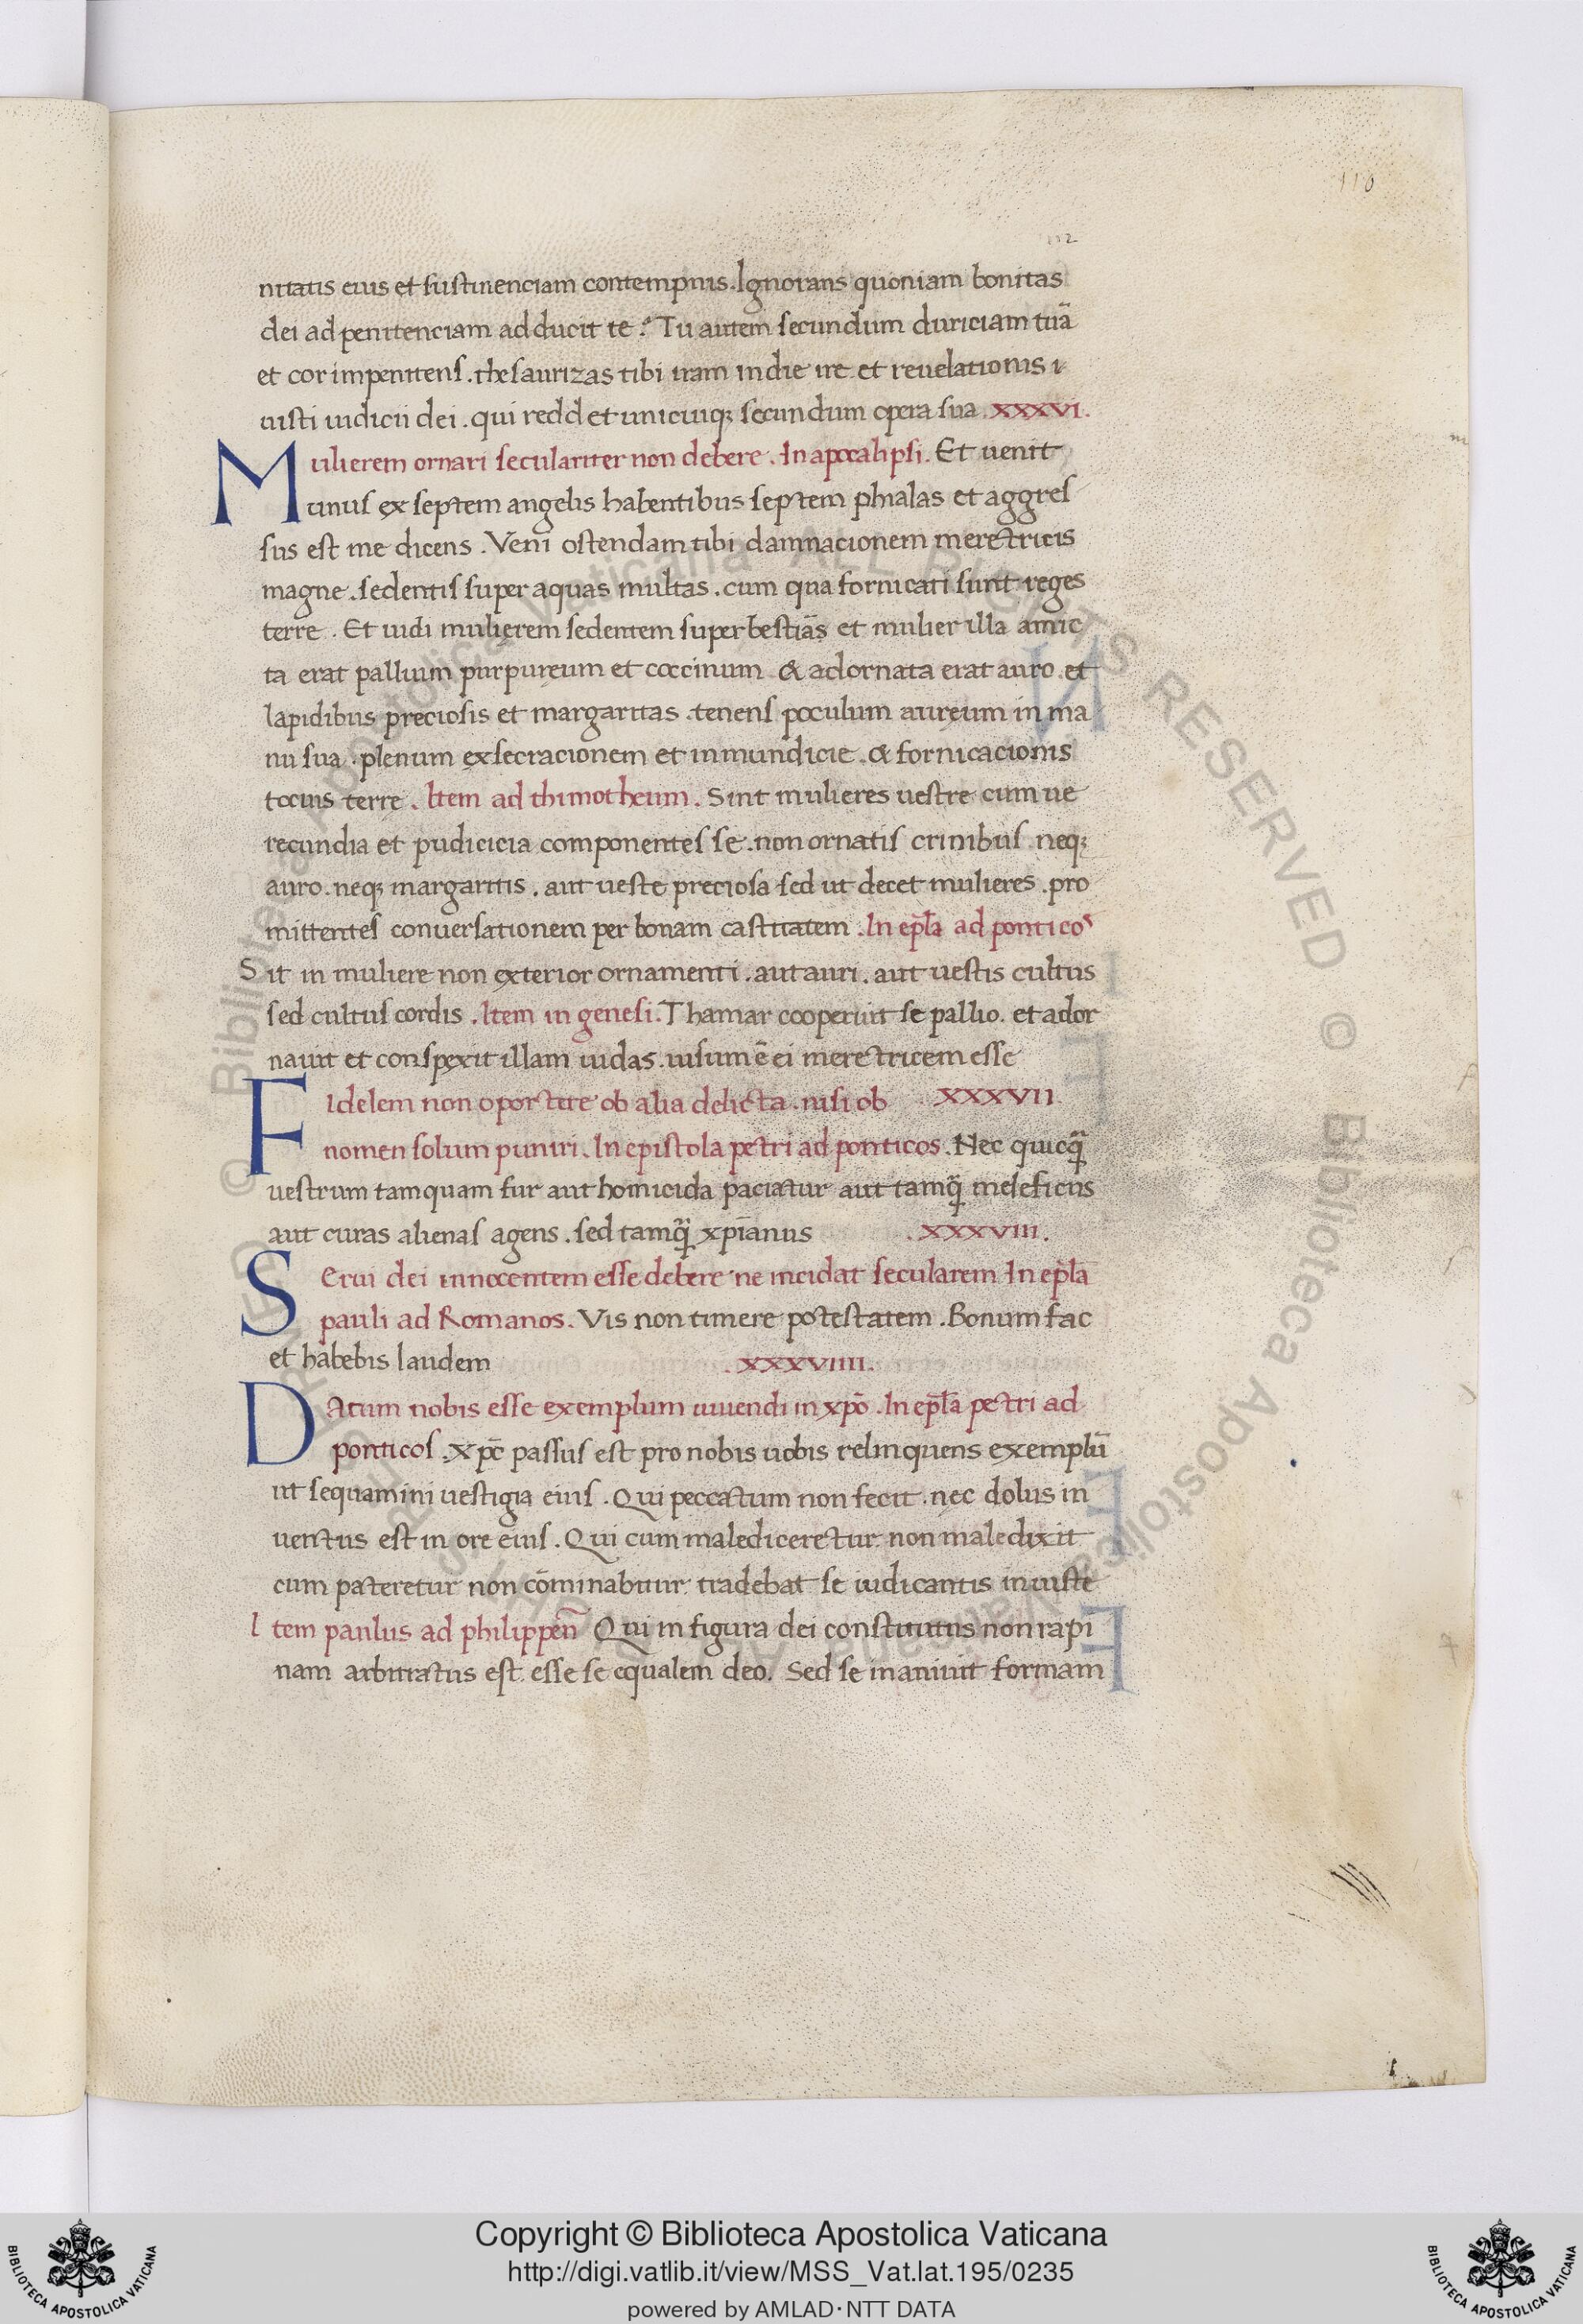 116
112
nitatis eius et sustinenciam contempnis. Ignorans quoniam bonitas
dei ad penitenciam adducit te? Tu autem secundum duriciam tuā
et cor impenitens. thesaurizas tibi iram in die ire et reuelationis i
uisti iudicii dei. qui reddet unicuiq; secundum opera sua. XXXVI.
Mulierem ornari seculariter non debere. In apocalipsi. Et uenit
unus ex septem angelis habentibus septem phialas et aggres
sus est me dicens. Veni ostendam tibi damnacionem meretricis
magne. sedentis super aquas multas. cum qua fornicati sunt reges
terre. Et uidi mulierem sedentem super bestiās et mulier illa amic
ta erat pallium purpureum et coccinum & adornata erat auro. et
lapidibus preciosis et margaritas. tenens poculum aureum in ma
nu sua. plenum exsecracionem et inmundicie. & fornicacionis
tocius terre. Item ad thimotheum. Sint mulieres uestre cum ue
recundia et pudicicia componentes se. non ornatis crinibus neq;
auro. neq; margaritis. aut ueste preciosa sed ut decet mulieres. pro
mittentes conuersationem per bonam castitatem. In ep̄la ad ponticos
Sit in muliere non exterior ornamenti. aut auri. aut uestis cultus
sed cultus cordis. Item in genesi. Thamar cooperuit se pallio. et ador
nauit et conspexit illam iudas. uisum ē ei meretricem esse
Fidelem non oportere ob alia delicta. nisi ob XXXVII.
nomen solum puniri. In epistola petri ad ponticos. Nec quicq̄
uestrum tamquam fur aut homicida paciatur aut tamq̄ meleficus
aut curas alienas agens. sed tamq̄ xp̄ianus .XXXVIII.
Serui dei innocentem esse debere ne incidat secularem In ep̄la
pauli ad Romanos. Vis non timere potestatem. Bonum fac
et habebis laudem .XXXVIIII.
Datum nobis esse exemplum uiuendi in xp̄o. In ep̄la petri ad
ponticos. Xp̄c passus est pro nobis uobis relinquens exemplū
ut sequamini uestigia eius. Qui peccatum non fecit. nec dolus in
uentus est in ore eius. Qui cum malediceretur non maledixit
cum pateretur non cōminabitur tradebat se iudicantis iniuste
Item paulus ad philippen̄ Qui in figura dei constitutus non rapi
nam arbitratus est esse se equalem deo. Sed se inaniuit formam
Copyright © Biblioteca Apostolica Vaticana
http://digi.vatlib.it/view/MSS_Vat.lat.195/0235
powered by AMLAD·NTT DATA
BIBLIOTECA APOSTOLICA VATICANA
BIBLIOTECA APOSTOLICA VATICANA